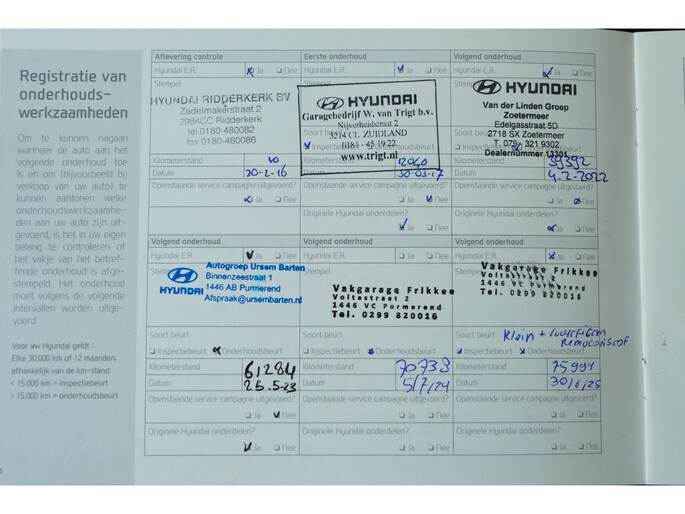 Registratie van
onderhouds-
werkzaamheden
Om te kunnen nagaan
wanneer de auto aan het
volgende onderhoud toe
is en om (bijvoorbeeld bij
verkoop van uw auto) te
kunnen aantonen welke
onderhoudswerkzaamhe-
den aan uw auto zijn uit-
gevoerd, is het in uw eigen
belang te controleren of
het vakje van het betref-
fende onderhoud is afge-
stempeld. Het onderhoud
moet volgens de volgende
intervallen worden uitge-
voerd
Voor uw Hyundai geldt :
Elke 30.000 km of 12 maanden
afhankelijk van de km-stand:
< 15.000 km = inspectiebeurt
> 15.000 km = onderhoudsbeurt
Aflevering controle
Hyundai E.R. Ja Nee
Stempel
HYUNDAI RIDDERKERK BV
Zadelmakerstraat 2
2984CC Ridderkerk
tel 0180-480082
fax 0180-480086
Kilometerstand 10
Datum 20-2-16
Openstaande service campagne uitgevoerd?
Ja Nee
Eerste onderhoud
Hyundai E.R. Ja Nee
HYUNDAI
Garagebedrijf W. van Trigt b.v.
Nijverheidsstraat 2
3214 CL ZUIDLAND
0181 - 45 19 22
www.trigt.nl
Soort beurt
Kilometerstand 12040
Datum 30-03-17
Openstaande service campagne uitgevoerd?
Ja Nee
Originele Hyundai onderdelen?
Ja Nee
Volgend onderhoud
Hyundai E.R. Ja Nee
HYUNDAI
Van der Linden Groep
Zoetermeer
Edelgasstraat 5D
2718 SX Zoetermeer
T. 079 - 321 9302
Dealernummer 13301
Kilometerstand 39392
Datum 4-2-2022
Openstaande service campagne uitgevoerd?
Ja Nee
Originele Hyundai onderdelen?
Ja Nee
Volgend onderhoud
Hyundai E.R. Ja Nee
Stempel
HYUNDAI
Autogroep Ursem Barten
Binnenzeestraat 1
1446 AB Purmerend
Afspraak@ursembarten.nl
Soort beurt
Inspectiebeurt Onderhoudsbeurt
Kilometerstand 61284
Datum 25-5-23
Openstaande service campagne uitgevoerd?
Ja Nee
Originele Hyundai onderdelen?
Ja Nee
Volgend onderhoud
Hyundai E.R. Ja Nee
Stempel
Vakgarage Frikkee
Voltastraat 2
1446 VC Purmerend
Tel. 0299 820016
Soort beurt
Inspectiebeurt Onderhoudsbeurt
Kilometerstand 70738
Datum 5/7/24
Openstaande service campagne uitgevoerd?
Ja Nee
Originele Hyundai onderdelen?
Ja Nee
Volgend onderhoud
Hyundai E.R. Ja Nee
Vakgarage Frikkee
Voltastraat 2
1446 VC Purmerend
Tel. 0299 820016
Soort beurt Klein +
Inspectiebeurt Onderhoudsbeurt
Kilometerstand 75994
Datum 30/6/25
Openstaande service campagne uitgevoerd?
Ja Nee
Originele Hyundai onderdelen?
Ja Nee